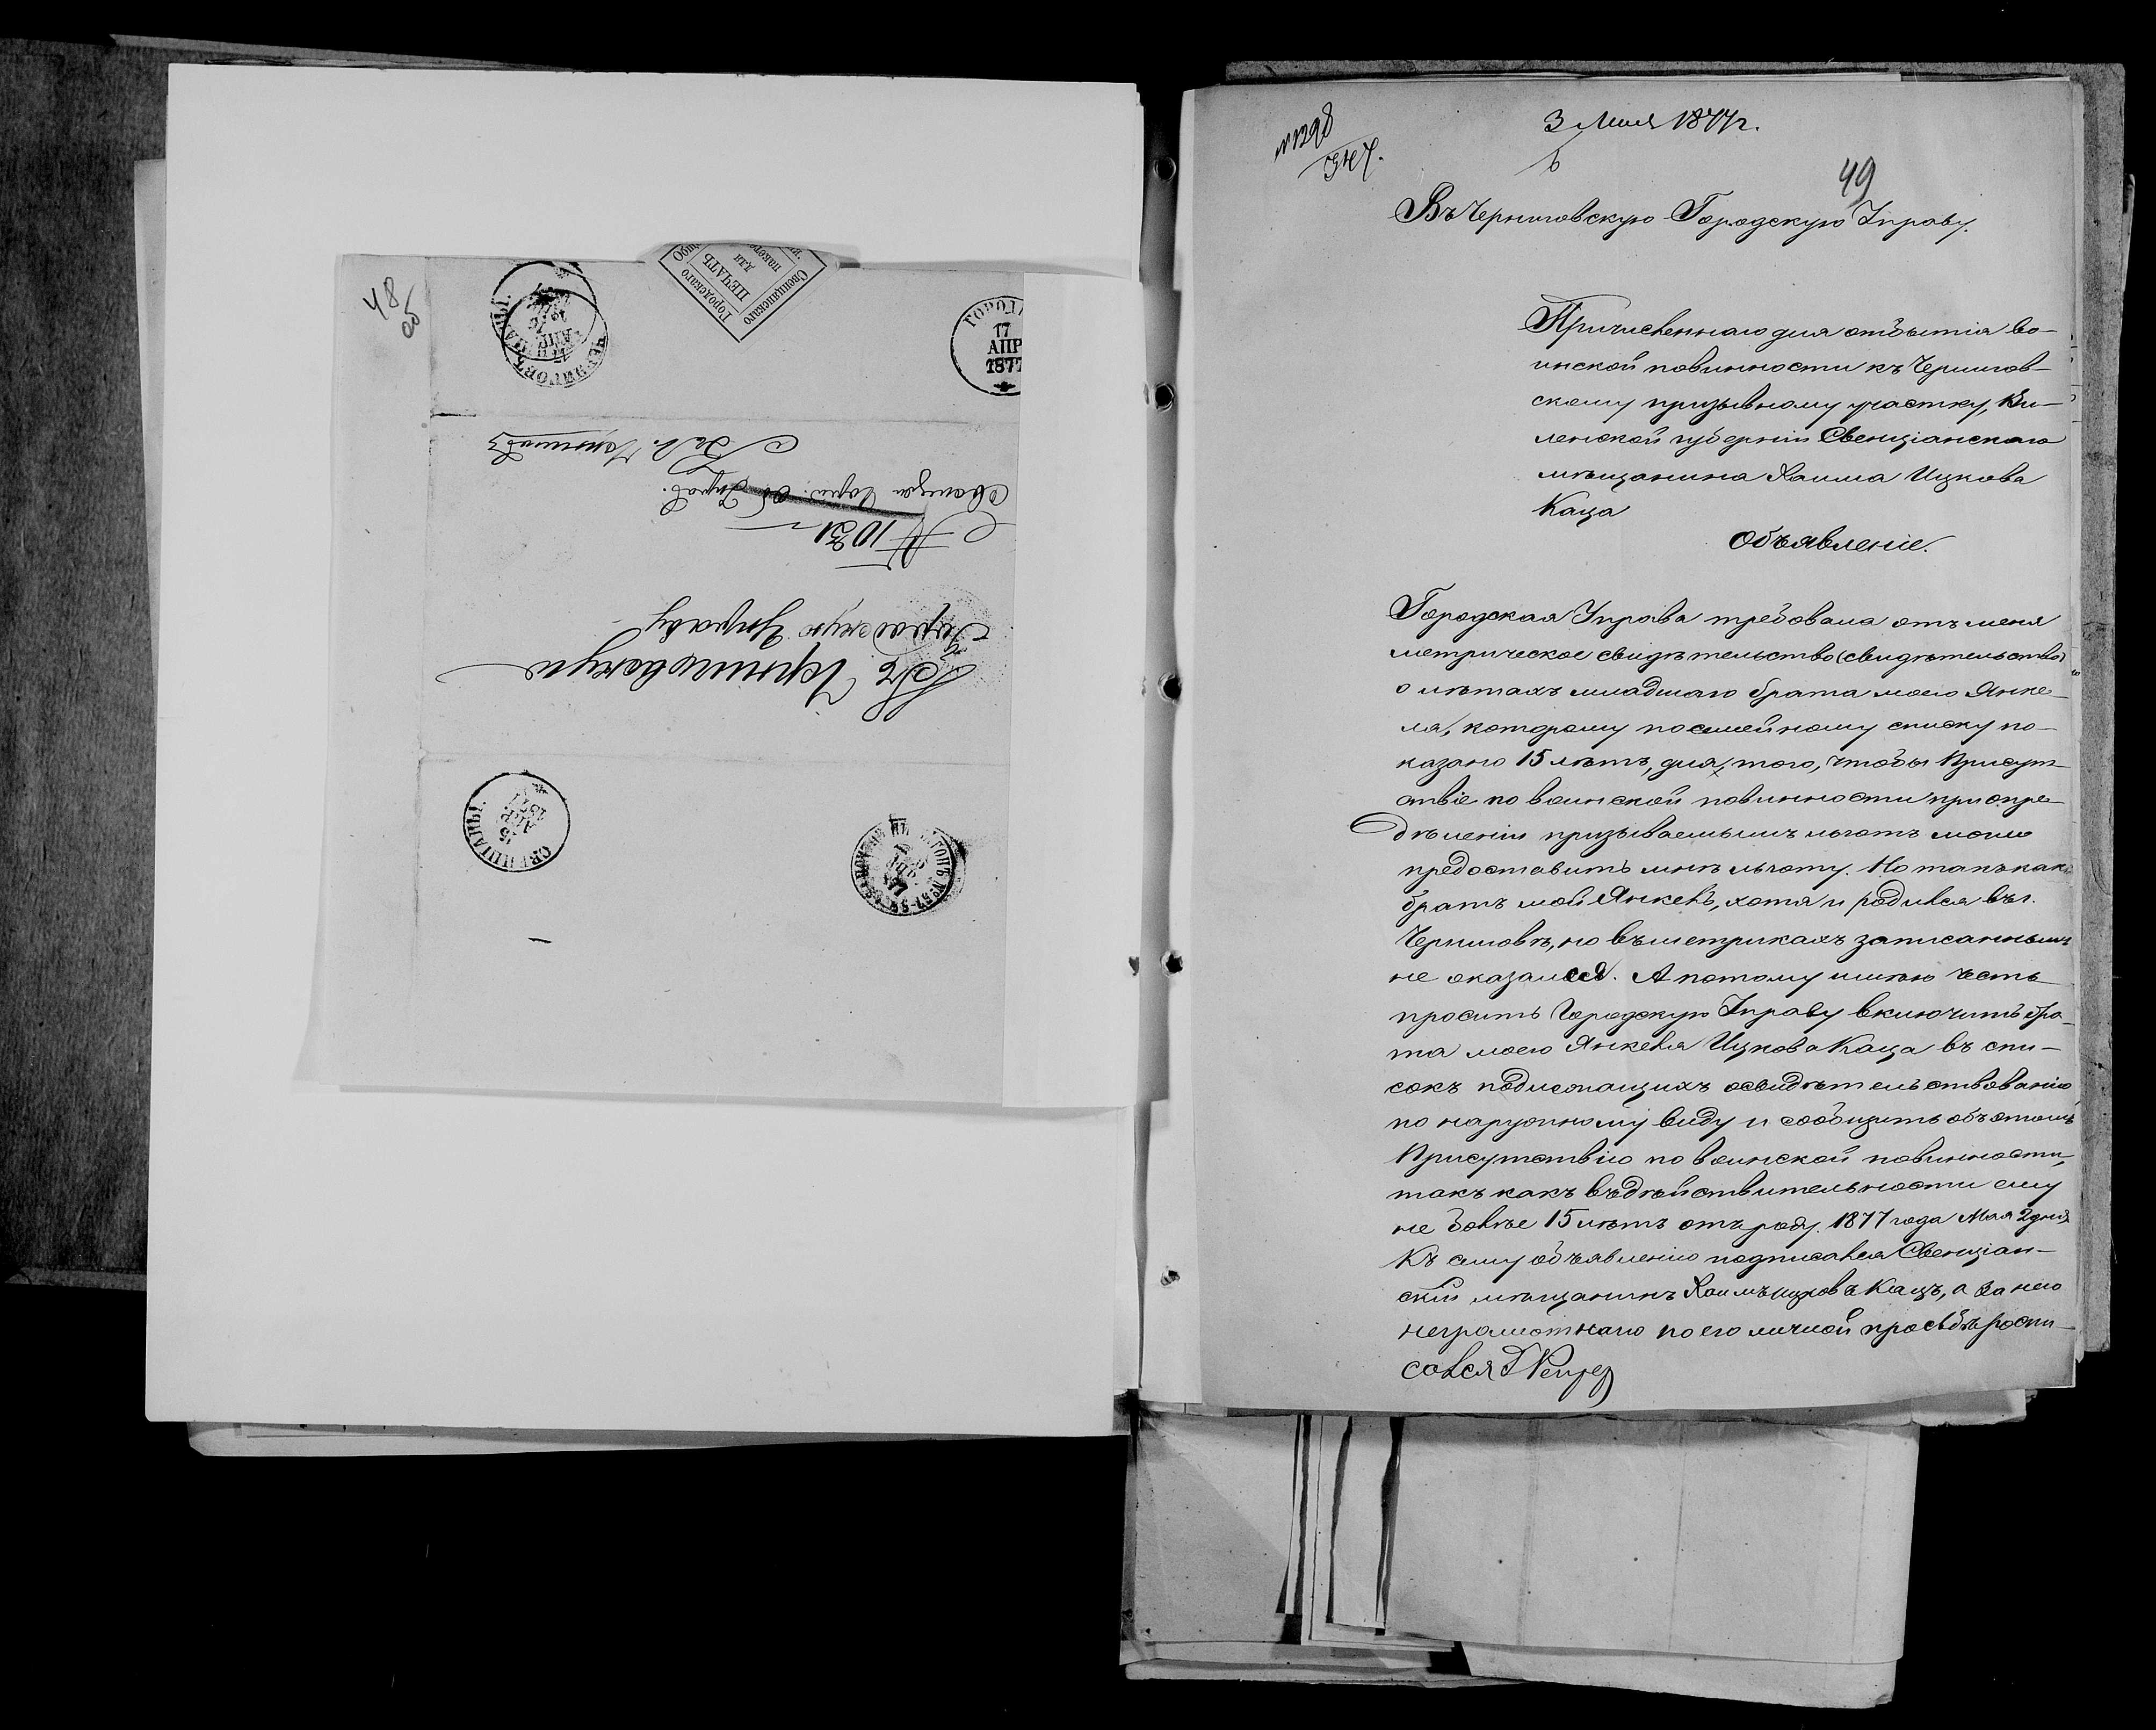 48
об
СВЕНЦЯНЫ.
ЧЕРНИГОВЪ
Свенцянскаго
Городскаго
ПЕЧАТЬ
для
17
АПР
1877
Въ Черниговскую
Городскую Управу
№ 1031
Свенцян. Город. Управ.
Черниговъ
СВЕНЦЯНЫ.
15
АПР
1877
№1298
347.
3 Мая 1877г.
49
Въ Черниговскую Городскую Управу.
Причисленнаго для отбытія во-
инской повинности къ Чернигов-
скому призывному участку, Ви-
ленской губерніи Свенціанскаго
мѣщанина Хаима Ицкова
Каца
Объявленіе.
Городская Управа требовала отъ меня
метрическое свидѣтельство (свидѣтельство)
о лѣтахъ младшаго брата моего Янке-
ля, которому по семейному списку по-
казано 15 лѣтъ, для того, чтобы Присут-
ствіе по воинской повинности при опре-
дѣленіи призываемымъ льготъ могло
предоставить мнѣ льготу. Но такъ какъ
братъ мой Янкель, хотя и родился въ г.
Черниговѣ, но въ метрикахъ записаннымъ
не оказался. А потому имѣю честь
просить Городскую Управу включить бра-
та моего Янкеля Ицкова Каца въ спи-
сокъ подлежащихъ освидѣтельствованію
по наружному виду и сообщить объ этомъ
Присутствію по воинской повинности,
такъ какъ въ дѣйствительности ему
не болѣе 15 лѣтъ отъ роду. 1877 года Мая 2 дня
Къ сему объявленію подписался Свенціан-
скій мѣщанинъ Хаимъ Ицковъ Кацъ, а за него
неграмотнаго по его личной просьбѣ роспи-
сался